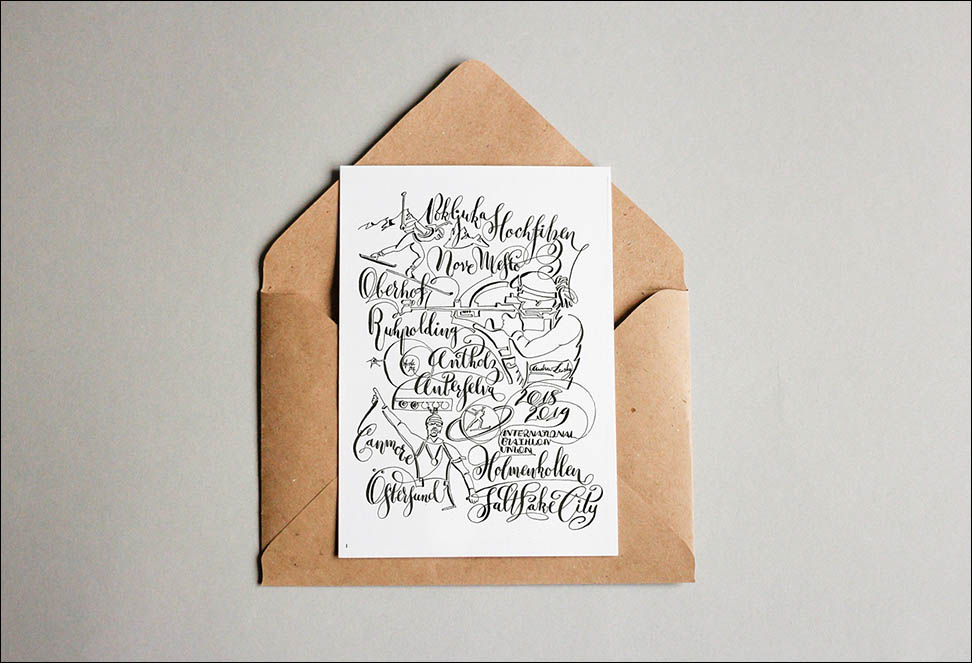 Pokljuka
Hochfilzen
Nove Mesto
Oberhof
Ruhpolding
Antholz
Anterselva
2018
2019
INTERNATIONAL
BIATHLON
UNION
Canmore
Holmenkollen
Östersund
Salt Lake City